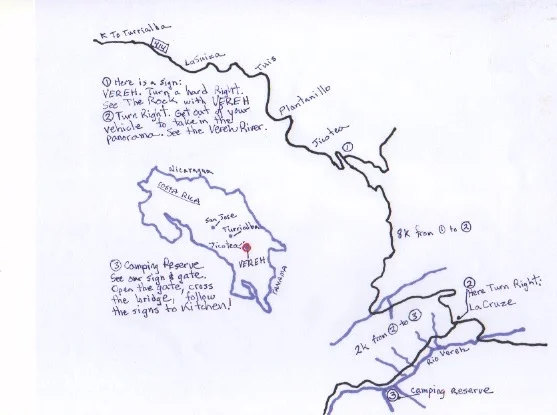 ← To Turrialba
414
LaSuiza
Tuis
① Here is a sign:
VEREH. Turn a hard Right.
See The Rock with VEREH
② Turn Right. Get out of your
vehicle to take in the
panorama. See the Vereh River.
Plantanillo
Jicotea
①
Nicaragua
COSTA RICA
San Jose
Turrialba
Jicotea
VEREH
PANAMA
8K from ① to ②
③ Camping Reserve
See our sign & gate.
Open the gate, cross
the bridge, follow
the signs to Kitchen!
②
Here Turn Right.
La Cruze
2K from ② to ③
Rio Vereh
③ Camping Reserve